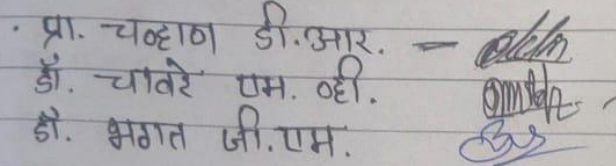 . प्रा. चव्हाण डी.आर. -
डॉ. चावरे एम. व्ही.
डॉ. भगत जी.एम.